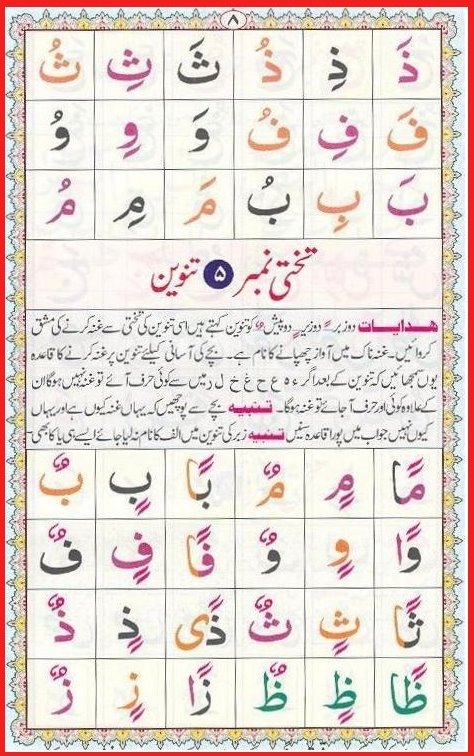 ۸
ذَ ذِ ذُ ثَ ثِ ثُ
فَ فِ فُ وَ وِ وُ
بَ بِ بُ مَ مِ مُ
تختی نمبر ۵ تنوین
ھدایات دو زبر ـً دو زیر ـٍ دو پیش ـٌ کو تنوین کہتے ہیں اسی تنوین کی تختی سے غنہ کرنے کی مشق
کروائیں۔ غنہ ناک میں آواز چھپانے کا نام ہے۔ بچے کی آسانی کیلئے تنوین پر غنہ کرنے کا قاعدہ
یوں سمجھائیں کہ تنوین کے بعد اگر ء ہ ع ح غ خ ل ر میں سے کوئی حرف آئے تو غنہ نہیں ہوگا ان
کے علاوہ کوئی اور حرف آجائے تو غنہ ہوگا۔ تنبیہ بچے سے پوچھیں کہ یہاں غنہ کیوں ہے اور یہاں
کیوں نہیں جواب میں پورا قاعدہ سنیں تنبیہ زبر کی تنوین میں الف کا نام نہ لیا جائے ایسے ہی یا کا بھی۔
مًا مٍ مٌ بًا بٍ بٌ
وًا وٍ وٌ فًا فٍ فٌ
ثًا ثٍ ثٌ ذًی ذٍ ذٌ
ظًا ظٍ ظٌ زًا زٍ زٌ